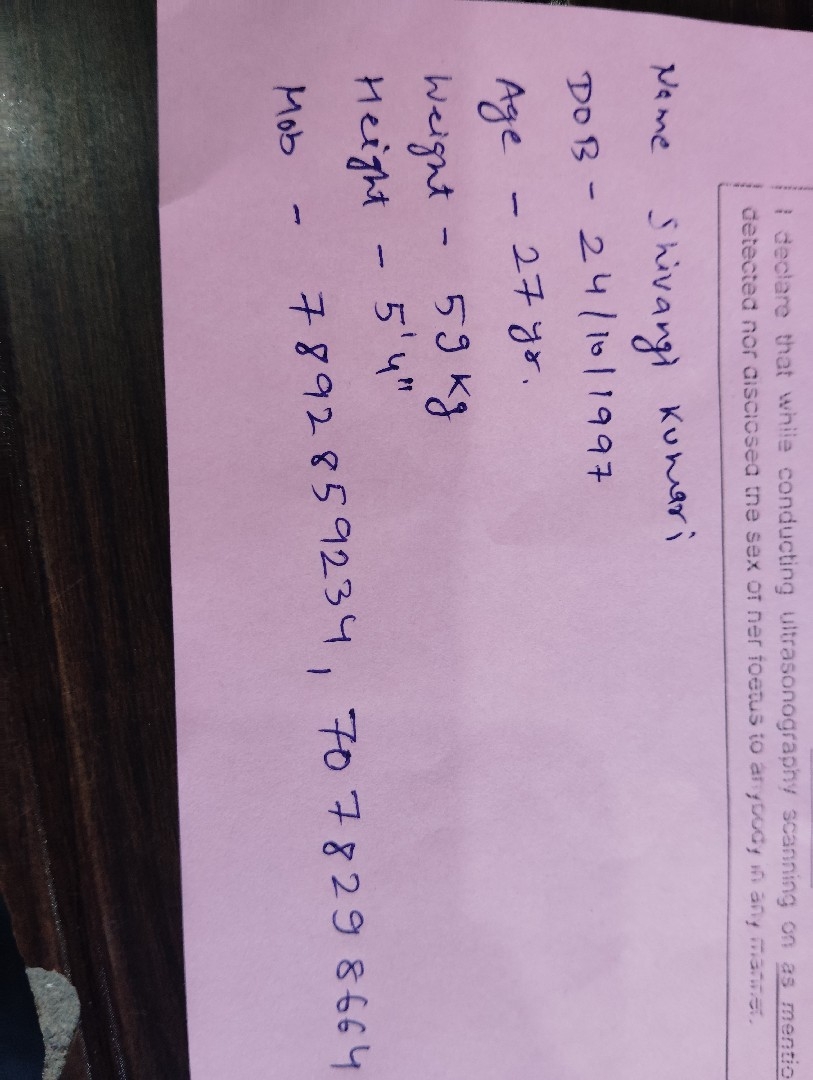 I declare that while conducting ultrasonography scanning on as mentio
detected nor disclosed the sex of her foetus to anybody in any manner.
Name Shivangi Kumari
DOB - 24/10/1997
Age - 27 yr.
Weight - 59 Kg
Height - 5'4"
Mob - 7892859234, 7078298664